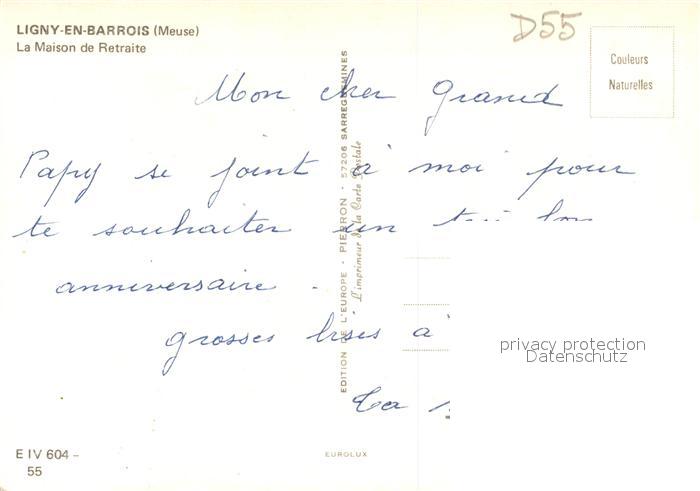 LIGNY-EN-BARROIS (Meuse)
La Maison de Retraite
D55
Couleurs
Naturelles
Mon cher Grand
Papy se joint à moi pour
te souhaiter un
anniversaire.
grosses bises à
EDITION DE L'EUROPE · PIERRON · 57206 SARREGUEMINES
L'imprimeur de la Carte Postale
privacy protection
Datenschutz
Ta
E IV 604 –
55
EUROLUX